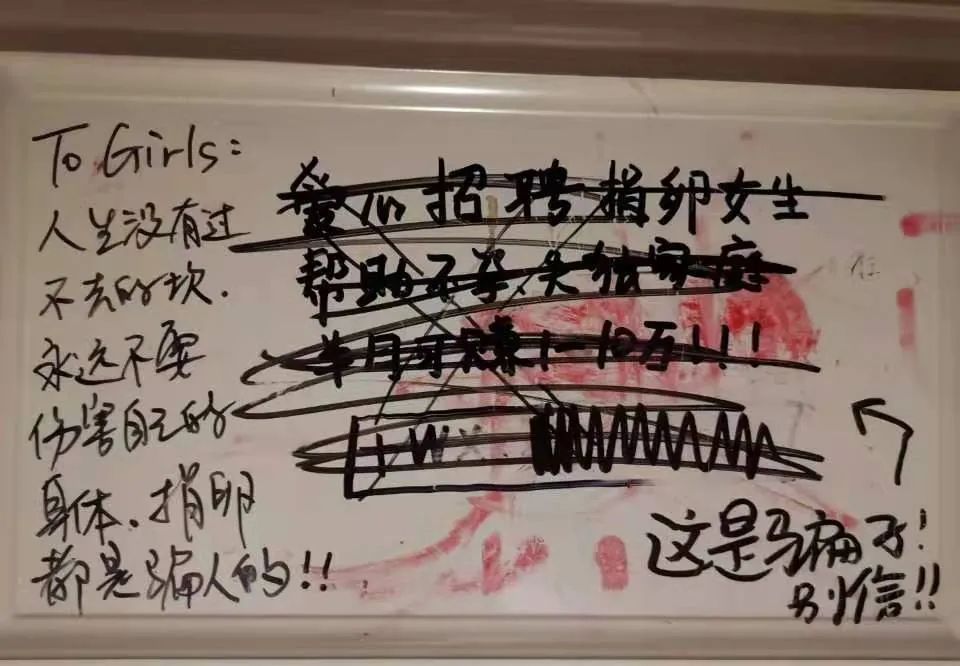 To Girls:
人生没有过
不去的坎.
永远不要
伤害自己的
身体、捐卵
都是骗人的!!
爱心招聘捐卵女生
帮助不孕、失独家庭
半月可赚1-10万!!!
+W
这是骗子!
别信!!